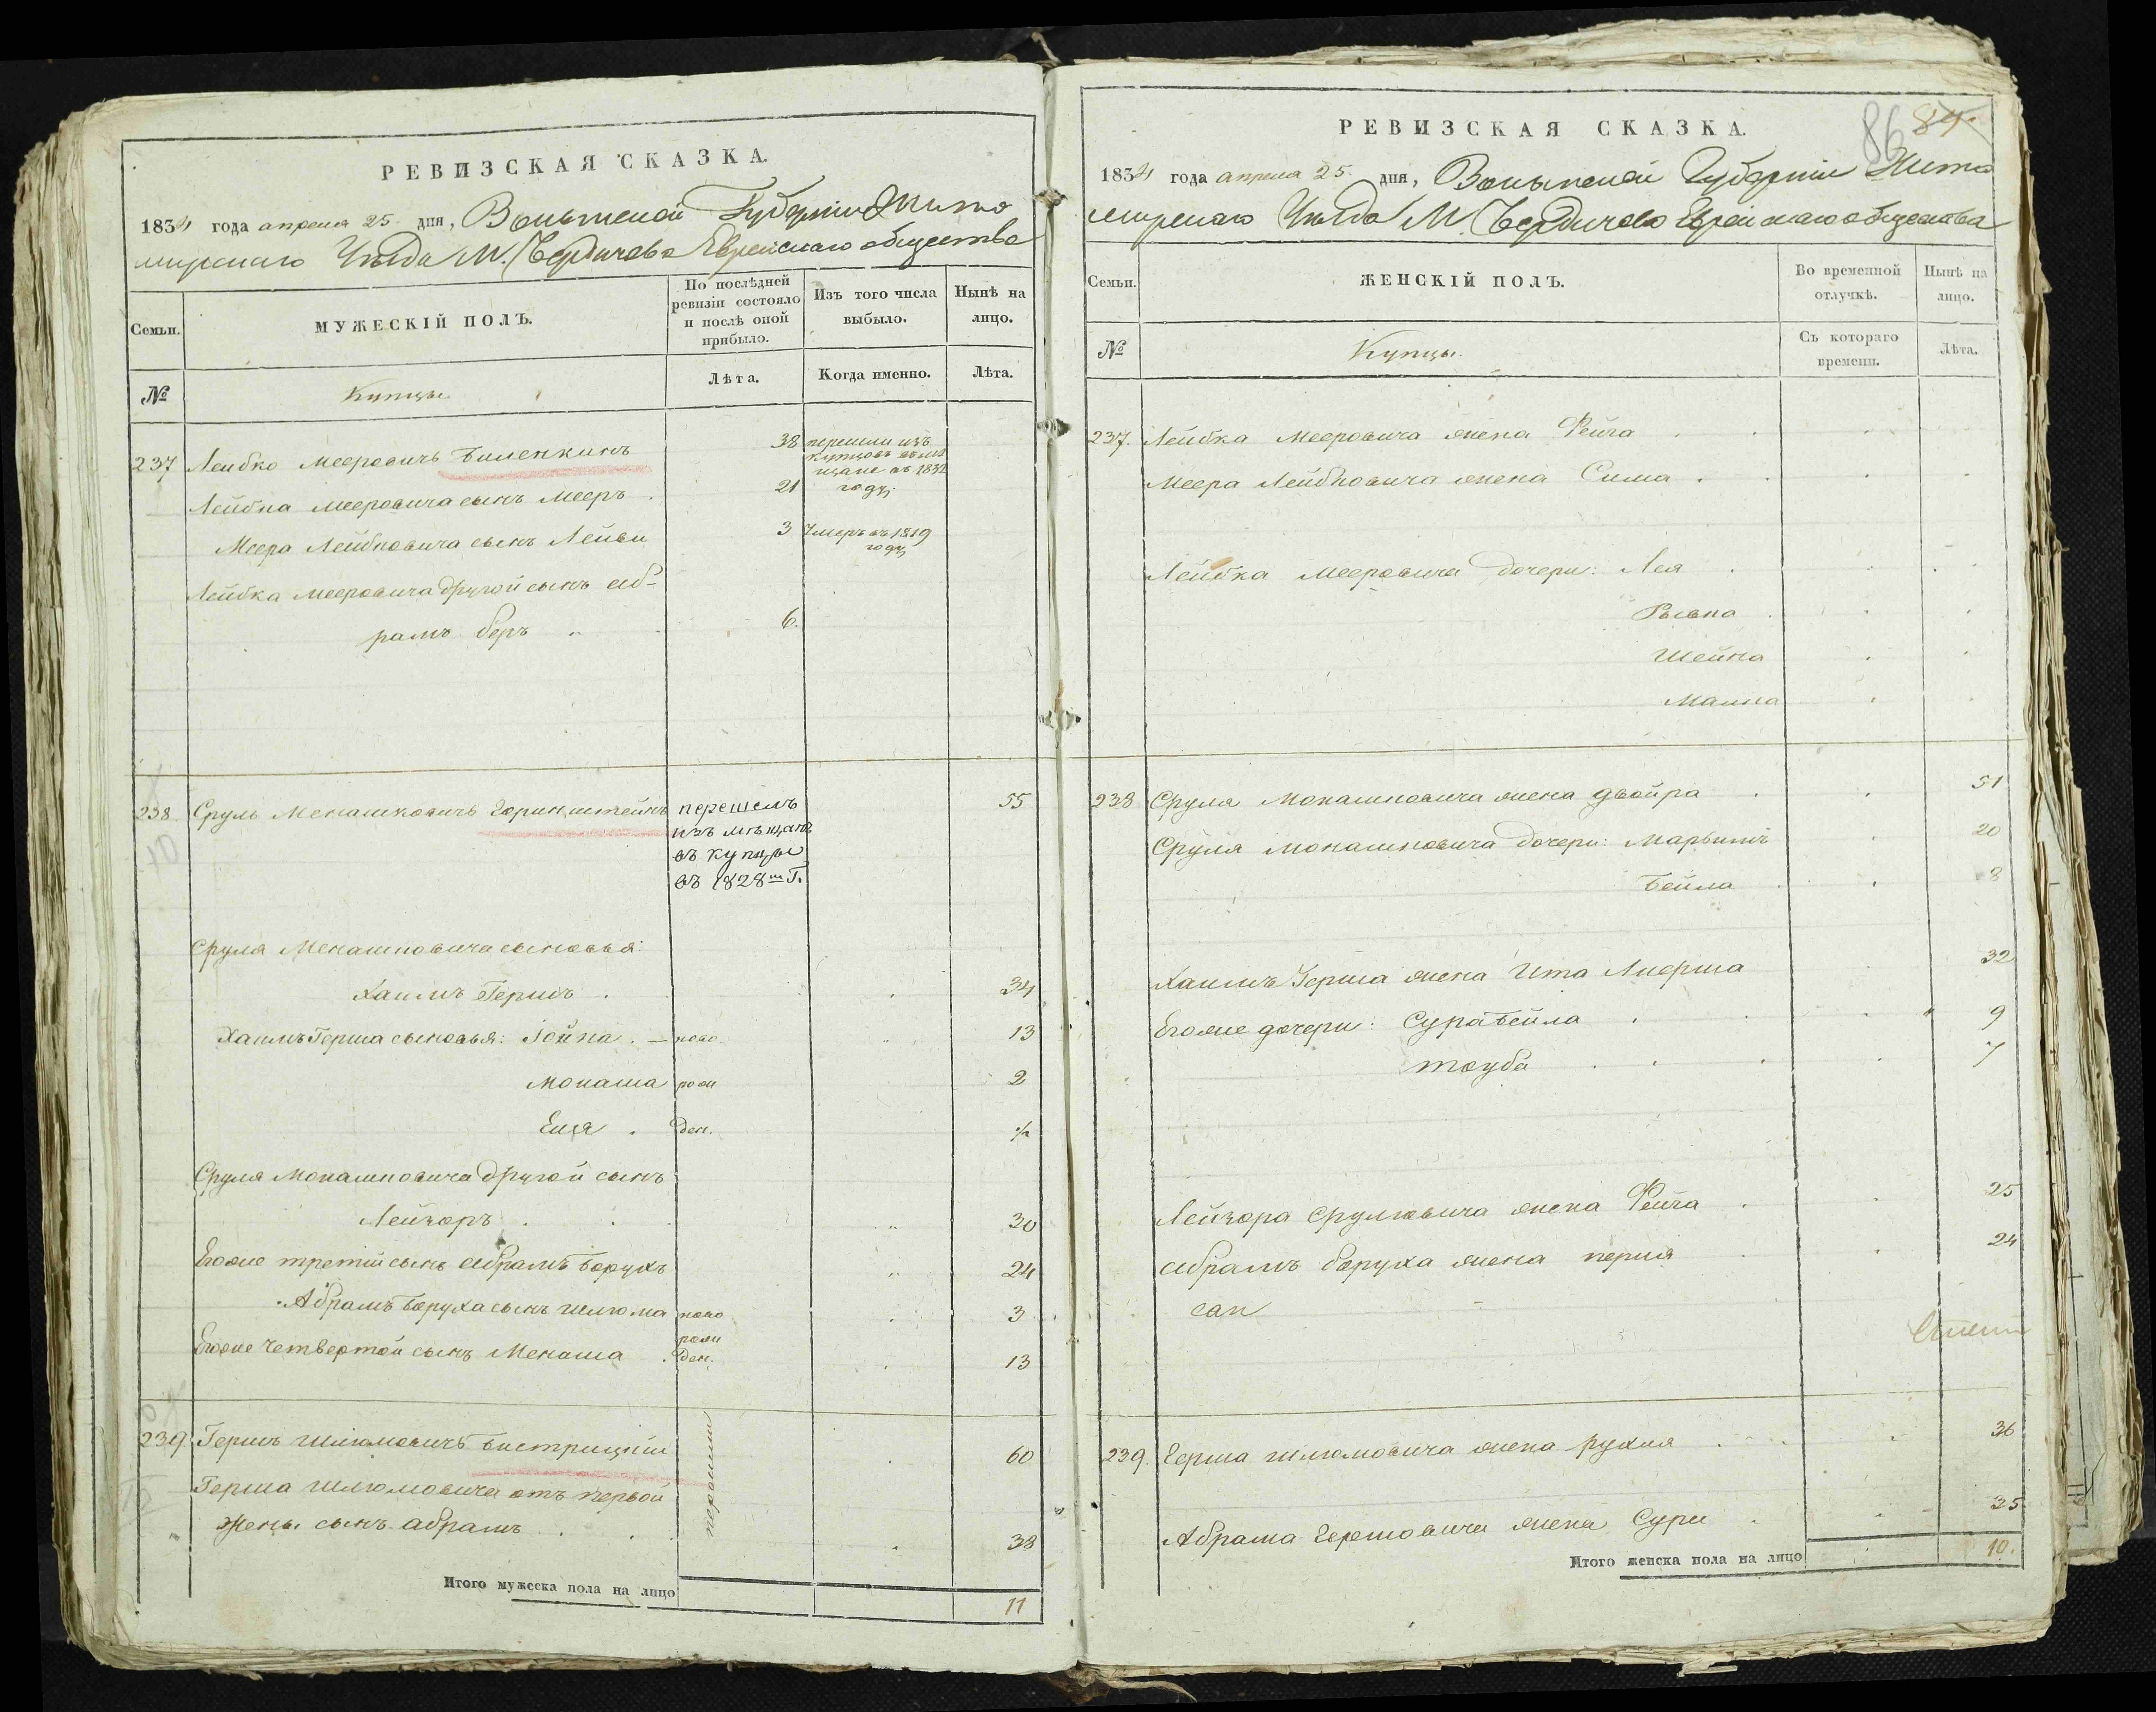 РЕВИЗСКАЯ СКАЗКА.
1834 года апреля 25 дня, Волынской Губерніи Жито
мирскаго Уѣзда М. Бердичева Еврейскаго общества
Семьи.
МУЖЕСКІЙ ПОЛЪ.
По послѣдней
ревизіи состояло
и послѣ оной
прибыло.
Изъ того числа
выбыло.
Нынѣ на
лицо.
№
Купцы.
Лѣта.
Когда именно.
Лѣта.
237 Лейбко Мееровичъ Биленкинъ 38 перешли изъ
купцовъ въ мѣ
щане въ 1832
году
Лейбка Мееровича сынъ Мееръ . 21
Меера Лейбковича сынъ Лейви 3 Умеръ въ 1819
году
Лейбка Мееровича другой сынъ Аб-
рамъ беръ 6.
238 Сруль Менашковичъ Горинштейнъ перешелъ 55
изъ мѣщанъ
въ купцы
въ 1828 Г.
Сруля Менашковича сыновья:
Хаимъ Гершъ . 34
Хаимъ Герша сыновья: Іойна . — ново 13
Монаша рож 2
Еця . ден. ½
Сруля Монашковича другой сынъ
Лейзоръ . 30
Егоже третій сынъ Абрамъ Борухъ 24
Абрамъ Боруха сынъ Шлюма ново 3
рож
Егоже четвертой сынъ Менаша . ден. 13
239. Гершъ Шлюмовичъ Бистрицкій 60
Герша Шлюмовича отъ первой
жены сынъ Абрамъ . 38
перешли
Итого мужеска пола на лицо
11
86 87.
РЕВИЗСКАЯ СКАЗКА.
1834 года апреля 25 дня, Волынской Губерніи Жито
мирскаго Уѣзда М. Бердичева Еврейскаго общества
Семьи.
ЖЕНСКІЙ ПОЛЪ.
Во временной
отлучкѣ.
Нынѣ на
лицо.
№
Купцы.
Съ котораго
времени.
Лѣта.
237. Лейбка Мееровича жена Фейга
Меера Лейбковича жена Сима .
Лейбка Мееровича дочери: Лея
Рывка
Шейна
Малка
238 Сруля Монашковича жена Двойра 51
Сруля Монашковича дочери: Марьимъ 20
Бейла 8
Хаимъ Герша жена Ита 32
Егоже дочери: Сура Бейла . 9
Тауба . 7
Лейзора Срулювича жена Фейга . 25
Абрамъ Боруха жена перля 24
239. Герша Шлюмовича жена Рухля 36
Абрама Гершовича жена Сури 35
Итого женска пола на лицо
10.